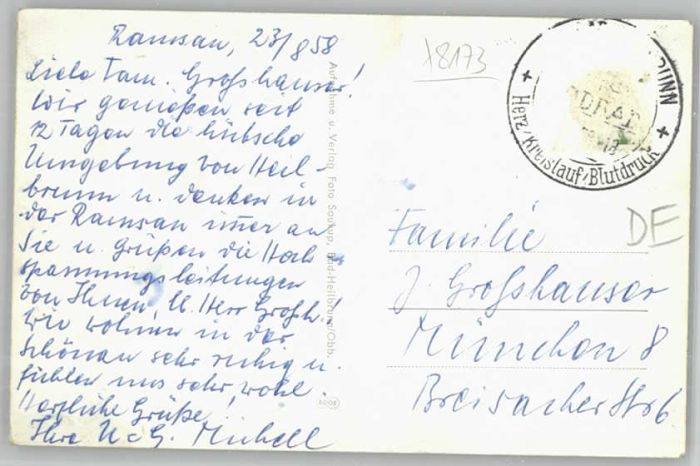 Ramsau, 23/8 58
Liebe Fam. Großhauser!
Wir genießen seit
12 Tagen die hübsche
Umgebung von Heil-
brunn u. denken in
der Ramsau immer an
Sie u. grüßen die Hoch
spannungsleitungen
von Ihnen, l. Herr Großh.!
Wir wohnen in der
schönen sehr ruhig u.
fühlen uns sehr wohl.
Herzliche Grüße,
Ihre
Aufnahme u. Verlag Foto Soukup, Bad-Heilbrunn/Obb.
18173
BRUNN
Herz/Kreislauf/Blutdruck
DE
Familie
J. Großhauser
München 8
Breisacher Str 6